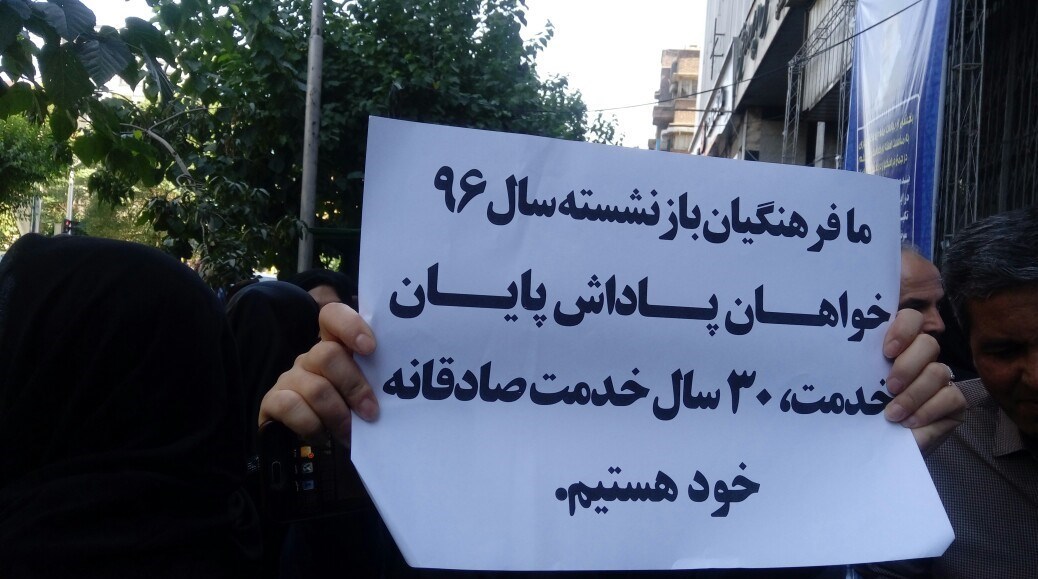 ما فرهنگیان بازنشسته سال ۹۶
خواهان پاداش پایان
خدمت، ۳۰ سال خدمت صادقانه
خود هستیم.